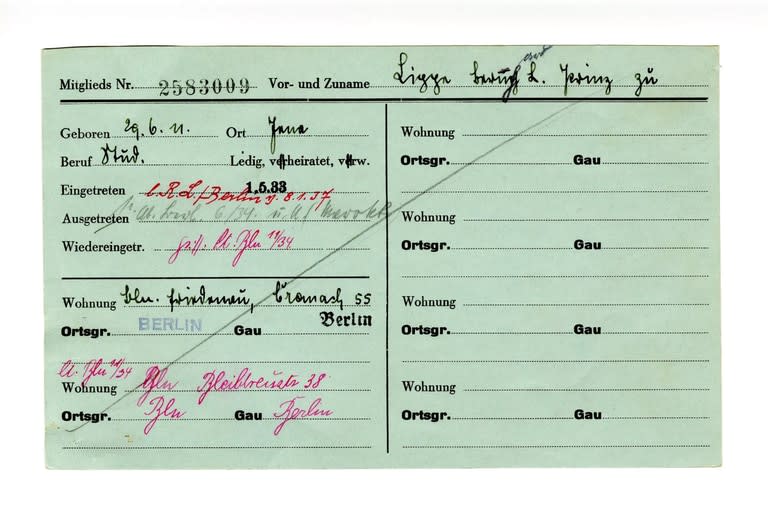 Mitglieds Nr. 2583009 Vor- und Zuname Lippe Bernh L. Prinz zu
Geboren 29.6.11. Ort Jena
Beruf Stud. Ledig, verheiratet, verw.
Eingetreten 1.5.33
l. R.L./Berlin v. 8.1.37
Ausgetreten 6/34. u.
Wiedereingetr. lt. Bln 11/34
Wohnung Bln. Friedenau, Cranach 55
Ortsgr. BERLIN Gau Berlin
lt. Bln 11/34
Wohnung Bln Bleibtreustr 38
Ortsgr. Bln Gau Berlin
Wohnung
Ortsgr. Gau
Wohnung
Ortsgr. Gau
Wohnung
Ortsgr. Gau
Wohnung
Ortsgr. Gau